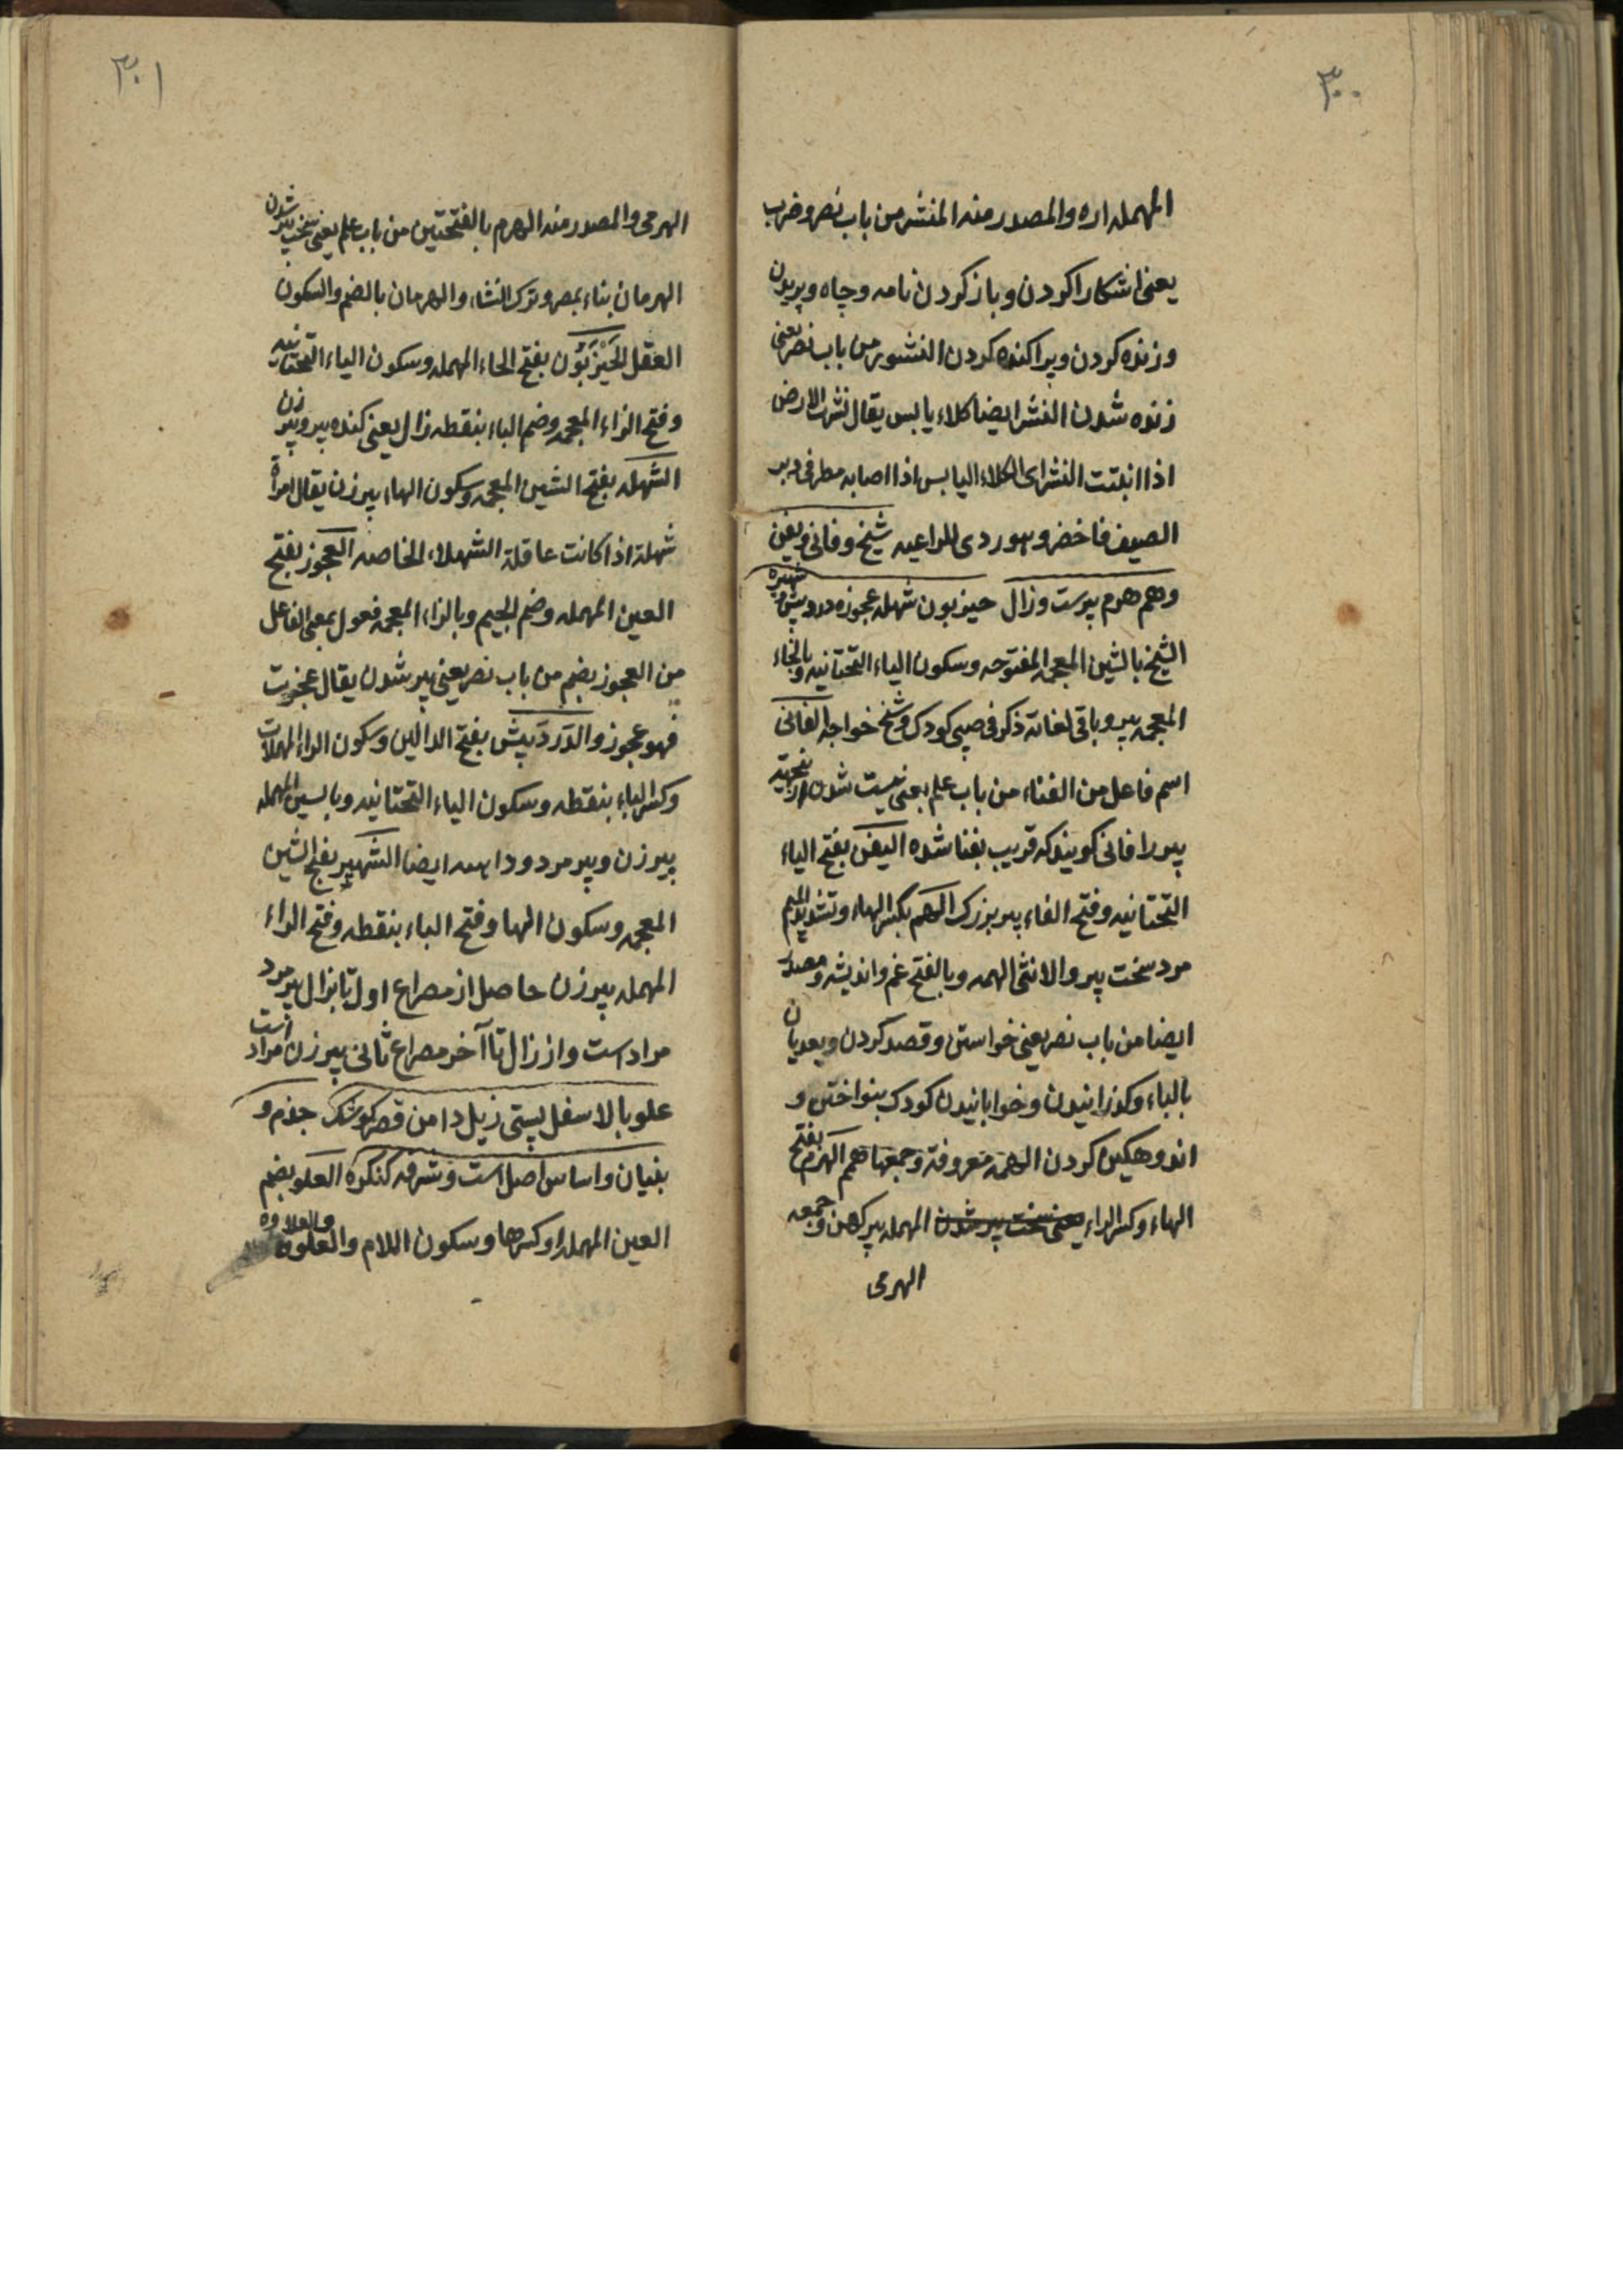 ۳۰۰
المهمله اره والمصدر منه المنشر من باب نصر وضرب
یعنی اشکارا کردن و باز کردن نامه و چاه و بریدن
و زنده کردن و پراکنده کردن النشور من باب نصر یعنی
زنده شدن النشر ایضا کلاء یابس یقال نشرت الارض
اذا انبتت النشر ای الکلاء الیابس اذا اصابه مطر فی دبر
الصیف فاخضر و هو ردی للراعیه شیخ و فانی و یفن
و هم هرم پیرست و زال حیزبون شهله عجوزه دردبیش و شهبره
الشیخ بالشین المعجمه المفتوحه وسکون الیاء التحتانیه وبالخاء
المعجمه پیر و باقی لغاته ذکر فی صبی کودک و شیخ خواجه الفانی
اسم فاعل من الفناء من باب علم یعنی نیست شدن از ینجهته
پیر را فانی کویند که قریب بفنا شده الیفن بفتح الیاء
التحتانیه وفتح الفاء پیر بزرک الهم بکسر الهاء وتشدید المیم
مرد سخت پیر والانثی الهمه وبالفتح غم و اندیشه و مصدر
ایضا من باب نصر یعنی خواستن و قصد کردن و یعدیان
بالباء و کدزانیدن و خوابانیدن کودک بنواختن و
اندوهکین کردن الهمه معروفة وجمعها همم الهرم بفتح
الهاء وکسر الراء یعنی سخت پیر شدن المهمله پیر کهن وجمعه
الهرمی
۳۰۱
الهرمی والمصدر منه الهرم بالفتحتین من باب علم یعنی سخت پیر شدن
الهرمان بناء بمصر و ترک النشاء والهرمان بالضم والسکون
العقل الحَیْزَبُون بفتح الحاء المهمله وسکون الیاء التحتانیه
وفتح الزاء المعجمه وضم الباء بنقطه زال یعنی کنده پیر و پیر زن
الشهله بفتح الشین المعجمه وسکون الهاء پیر زن یقال امراة
شهلة اذا کانت عاقلة الشهلاء الخاصه العجوز بفتح
العین المهمله وضم الجیم وبالزاء المعجمه فعول بمعنی الفاعل
من العجوز بضم من باب نصر یعنی پیر شدن یقال عجزت
فهو عجوز والدردبیش بفتح الدالین وسکون الراء المهملات
وکسر الباء بنقطه وسکون الیاء التحتانیه وبالسین المهمله
پیر زن و پیر مرد و داهیه ایضا الشهبر بفتح الشین
المعجمه وسکون الهاء وفتح الباء بنقطه وفتح الراء
المهمله پیر زن حاصل از مصراع اول تا بزال پیر مرد
مراد است و از زال تا آخر مصراع ثانی پیر زن مراد است
علو بالا سفل پستی زیل دامن قصر کوشک جذم و
بنیان و اساس اصل است و شرفه کنکره العلو بضم
العین المهمله او کسرها وسکون اللام والعلوه والعلاوه